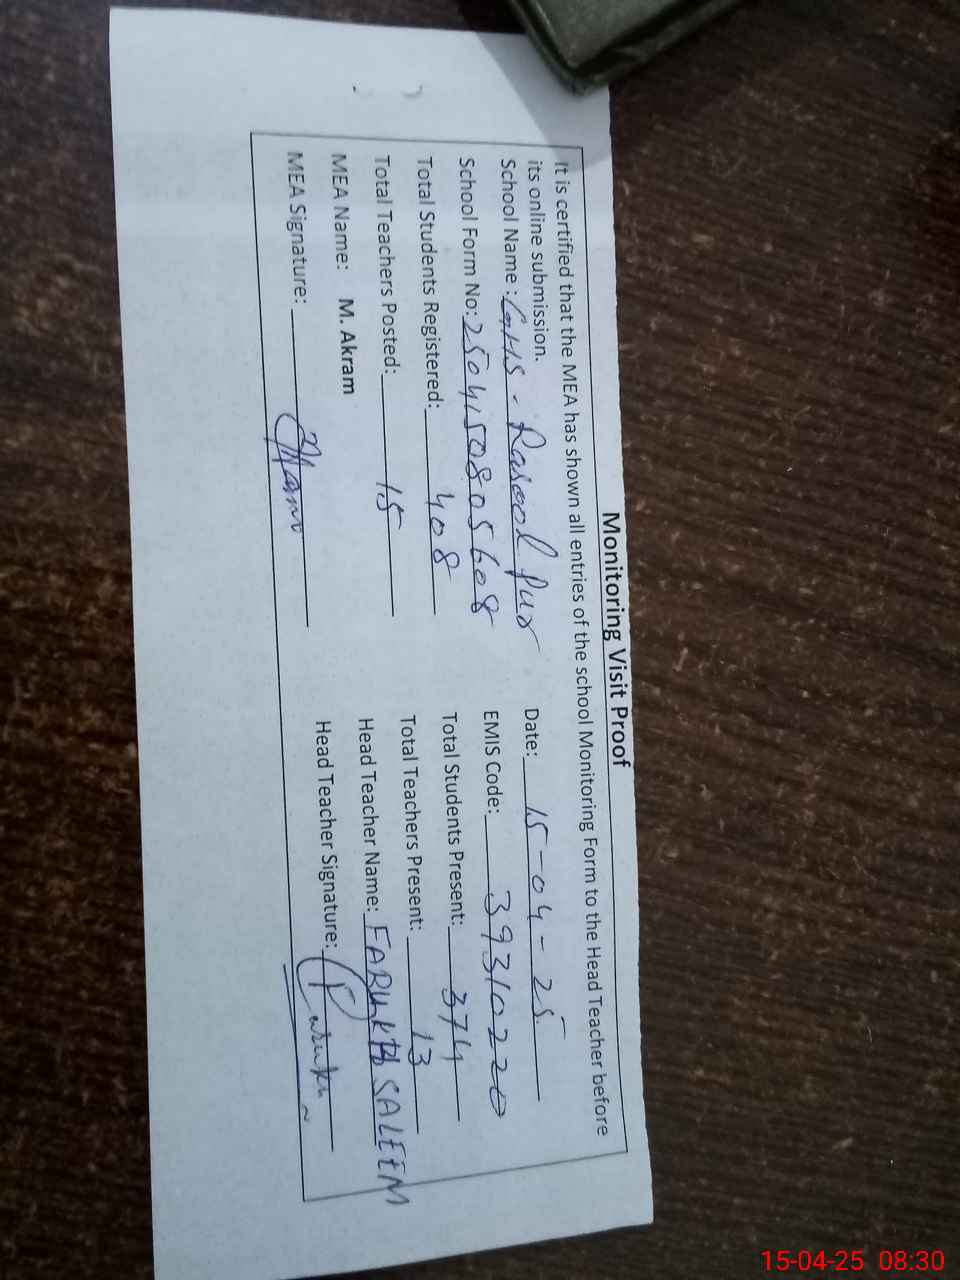 Monitoring Visit Proof
It is certified that the MEA has shown all entries of the school Monitoring Form to the Head Teacher before
its online submission.
School Name : GHS - Rasool Pur Date: 15-04-25
School Form No: 2504150805608 EMIS Code: 39310220
Total Students Registered: 408 Total Students Present: 374
Total Teachers Posted: 15 Total Teachers Present: 13
MEA Name: M. Akram Head Teacher Name: FARUKH SALEEM
MEA Signature: Head Teacher Signature:
15-04-25 08:30